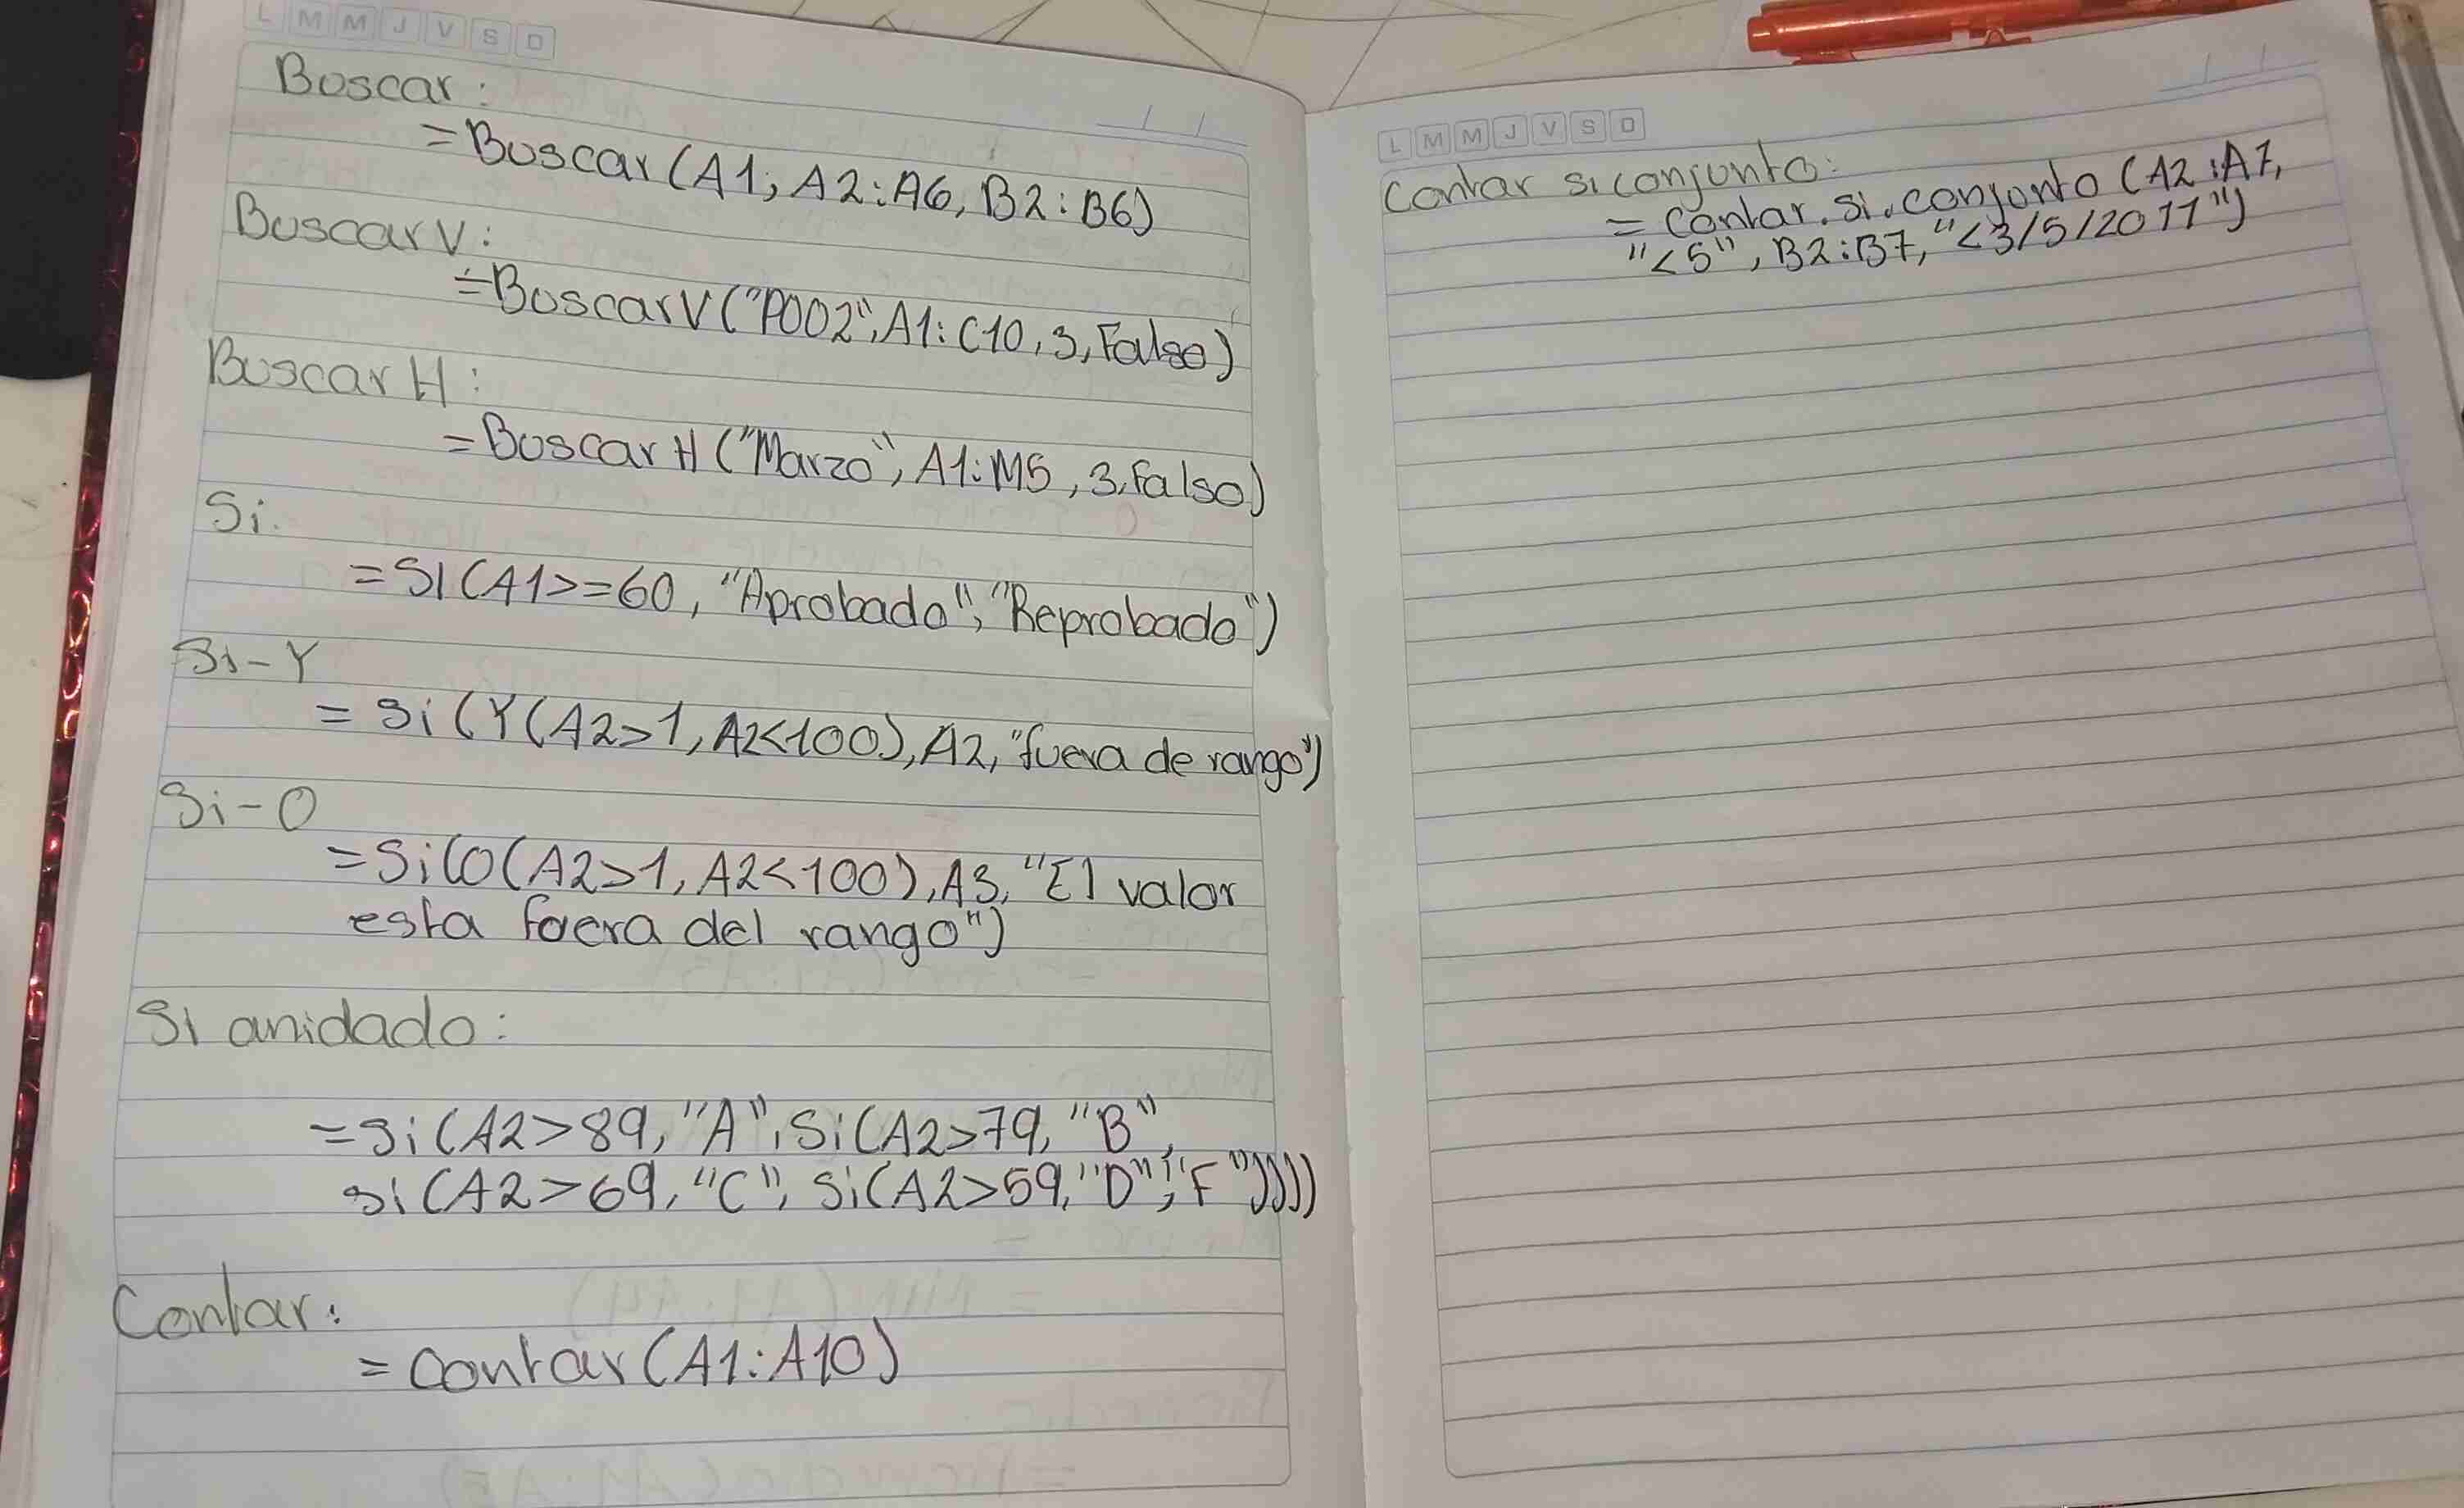 L M M J V S D
Buscar:
=Buscar(A1; A2:A6, B2:B6)
BuscarV:
=BuscarV("P002", A1:C10, 3, Falso)
Buscar H:
=Buscar H ("Marzo", A1:M5, 3, Falso)
Si.
=SI(A1>=60, "Aprobado", "Reprobado")
Si-Y
=Si(Y(A2>1, A2<100), A2, "fuera de rango")
Si-O
=Si(O(A2>1, A2<100), A3, "El valor
esta fuera del rango")
Si anidado:
=Si(A2>89, "A", Si(A2>79, "B",
Si(A2>69, "C", Si(A2>59, "D", "F"))))
Contar:
=Contar(A1:A10)
L M M J V S D
Contar si conjunto:
= Contar.si.conjunto (A2:A7,
"<5", B2:B7, "<3/5/2011")